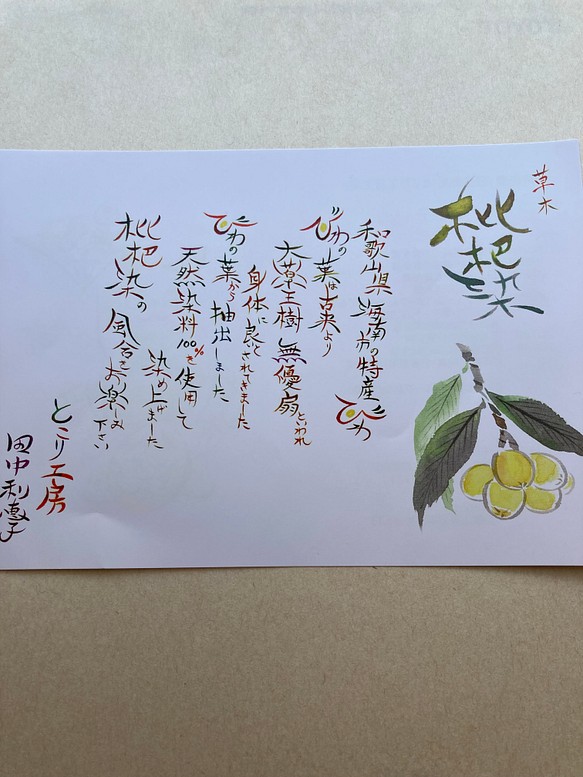 草木
枇杷染
和歌山県海南市の特産びわ
びわの葉は古来より
大薬王樹無優扇といわれ
身体に良いとされてきました
びわの葉から抽出しました
天然染料100%を使用して
染め上げました
枇杷染の風合をお楽しみ下さい
とこり工房
田中利恵子